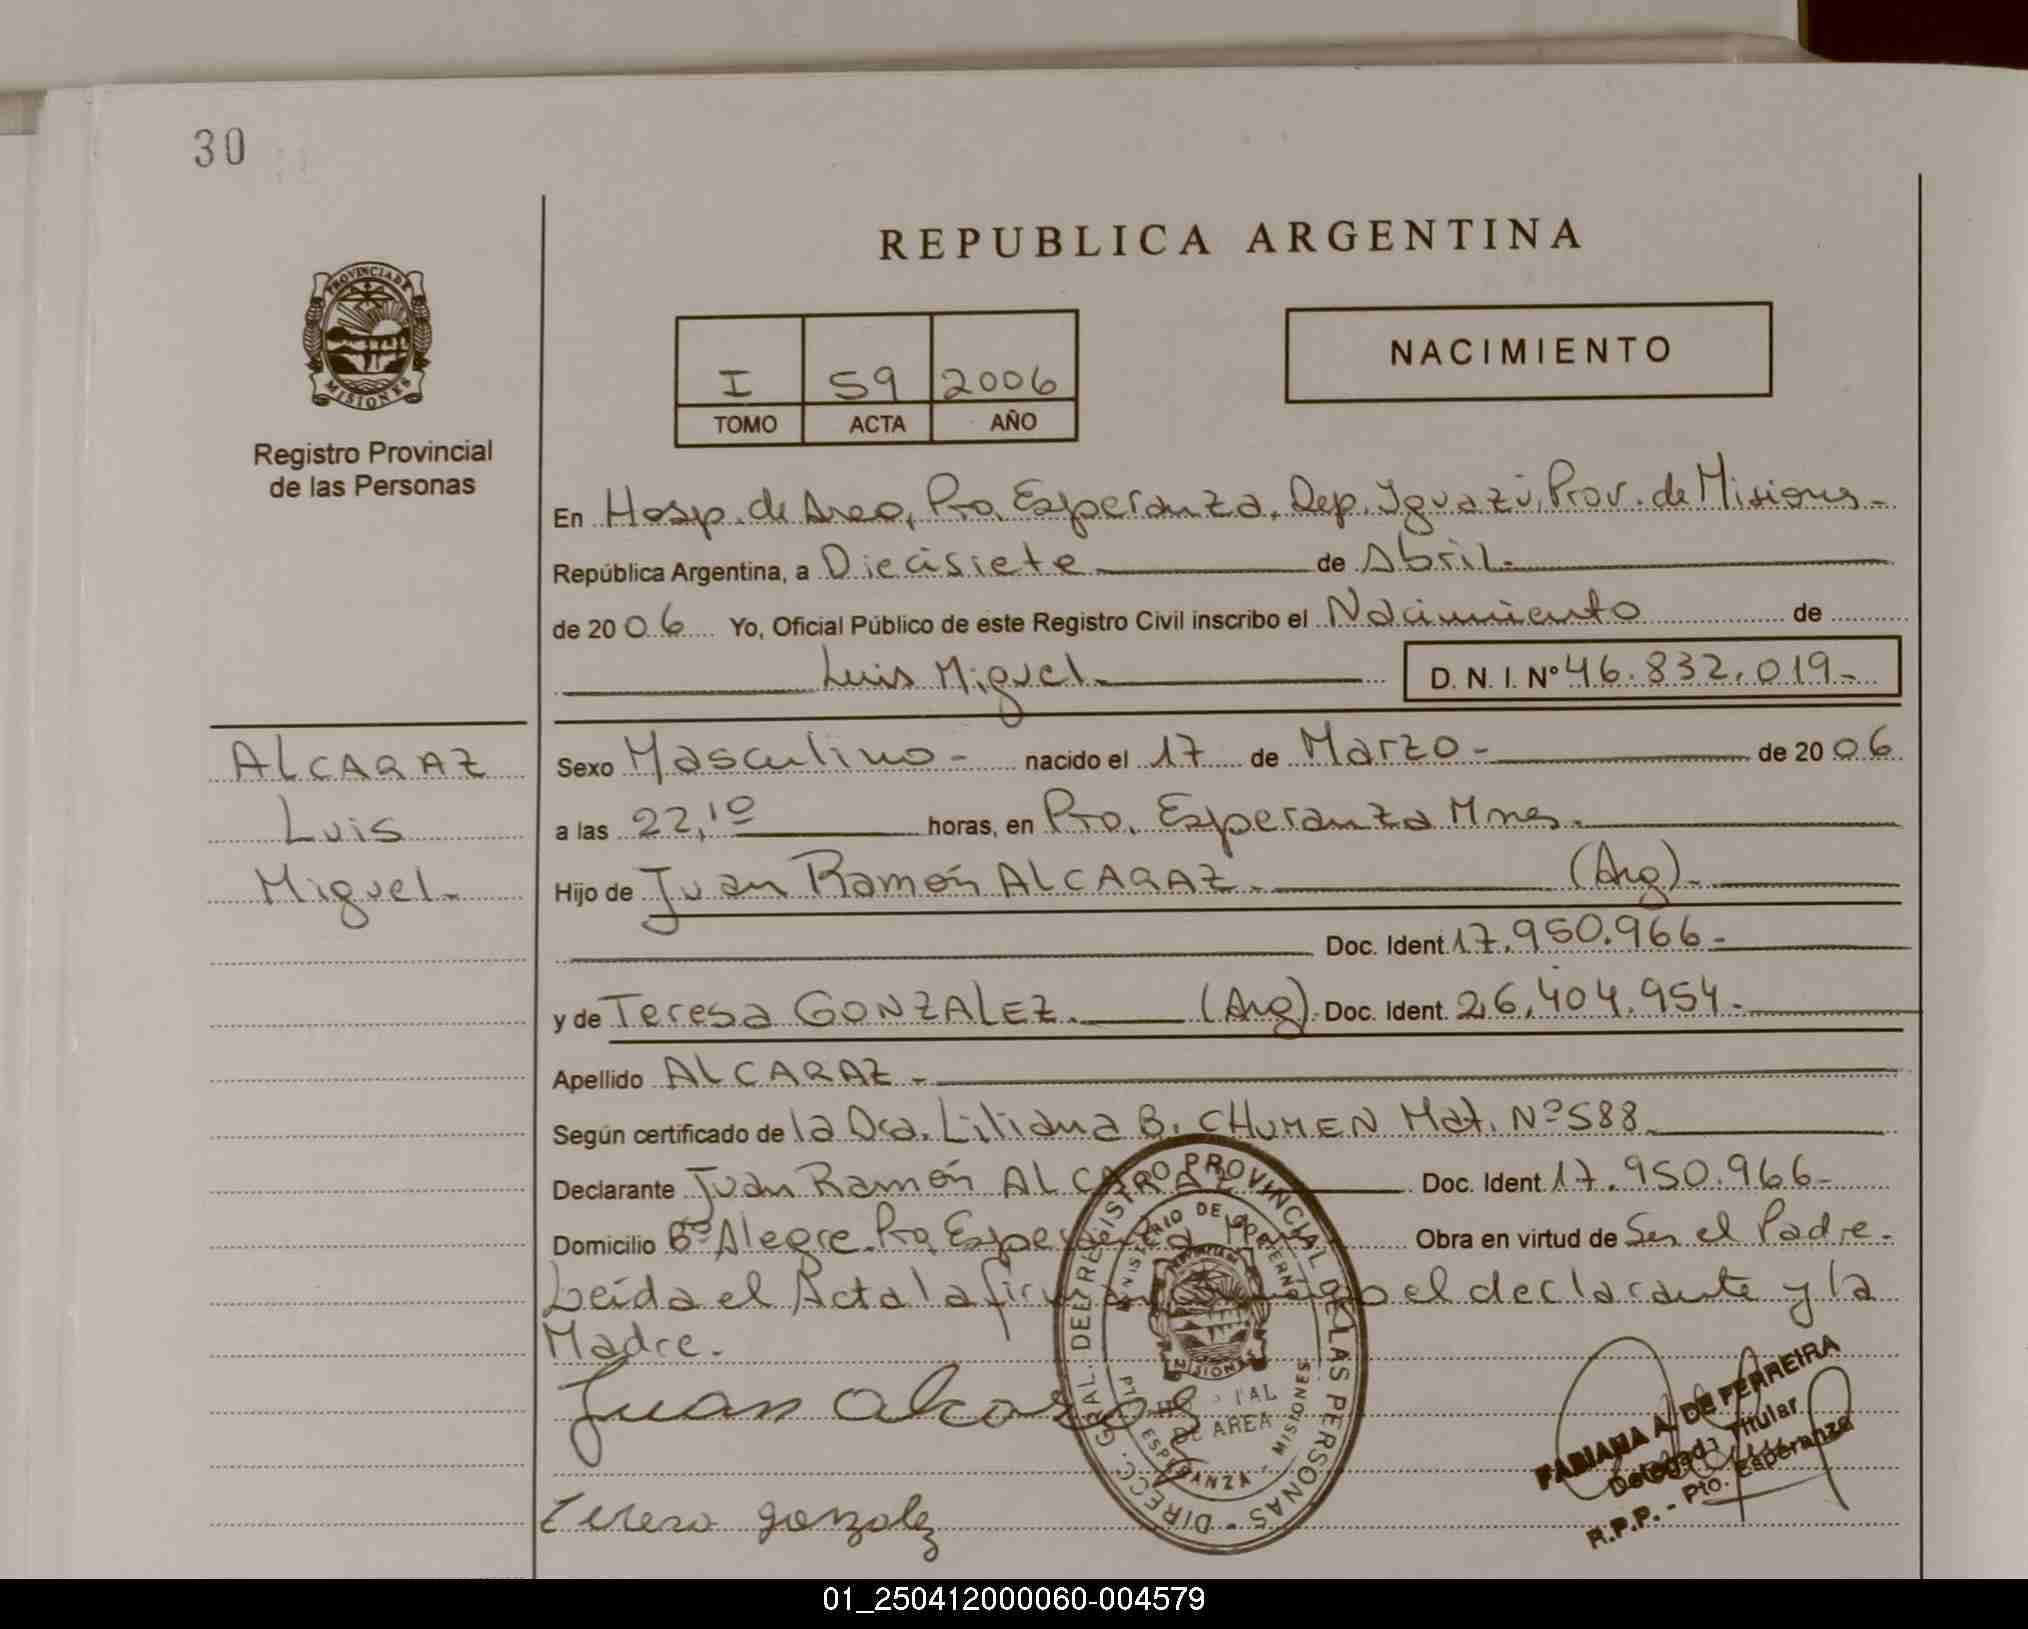 30
REPUBLICA ARGENTINA
PROVINCIA DE
MISIONES
Registro Provincial
de las Personas
I 59 2006
TOMO ACTA AÑO
NACIMIENTO
En Hosp. de Area, Pto. Esperanza, Dep. Iguazú, Prov. de Misiones-
República Argentina, a Diecisiete de Abril.
de 2006 Yo, Oficial Público de este Registro Civil inscribo el Nacimiento de
Luis Miguel. D. N. I. Nº 46.832.019-
ALCARAZ
Luis
Miguel-
Sexo Masculino- nacido el 17 de Marzo- de 2006
a las 22,10 horas, en Pto. Esperanza Mnes.
Hijo de Juan Ramón ALCARAZ. (Arg)-
Doc. Ident. 17.950.966-
y de Teresa GONZALEZ. (Arg). Doc. Ident. 26.404.954-
Apellido ALCARAZ-
Según certificado de la Dra. Liliana B. CHUMEN Mat. Nº 588
Declarante Juan Ramón ALCARAZ Doc. Ident 17.950.966-
Domicilio Bº Alegre. Pto. Esperanza Obra en virtud de Ser el Padre.
Leída el Acta la el declarante y la
Madre.
Juan Alcaraz
Teresa gonzalez
DIRECC. GRAL. DEL REGISTRO PROVINCIAL DE LAS PERSONAS
MINISTERIO DE GOBIERNO
MISIONES
HOSPITAL
DE AREA
PTO. ESPERANZA - MISIONES
FABIANA A. DE FERREIRA
Delegada Titular
R.P.P. - Pto. Esperanza
01_250412000060-004579